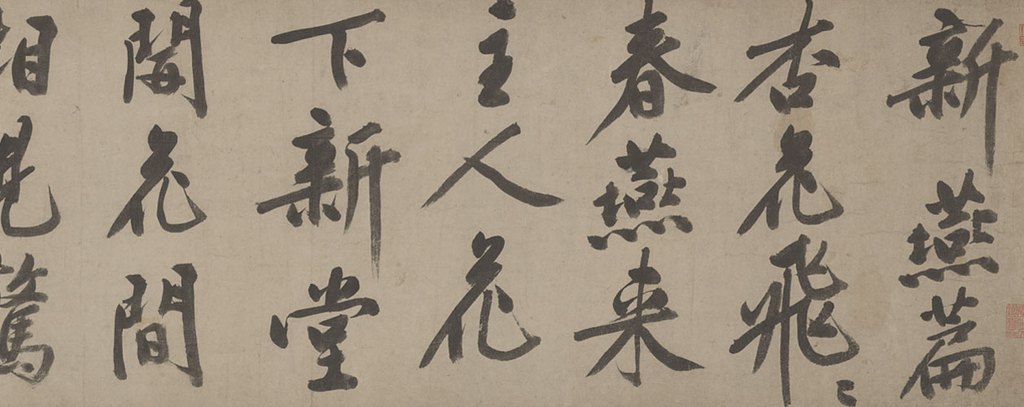 新燕篇
杏花飛々
春燕来
主人花
下新堂
開花間
相見驚